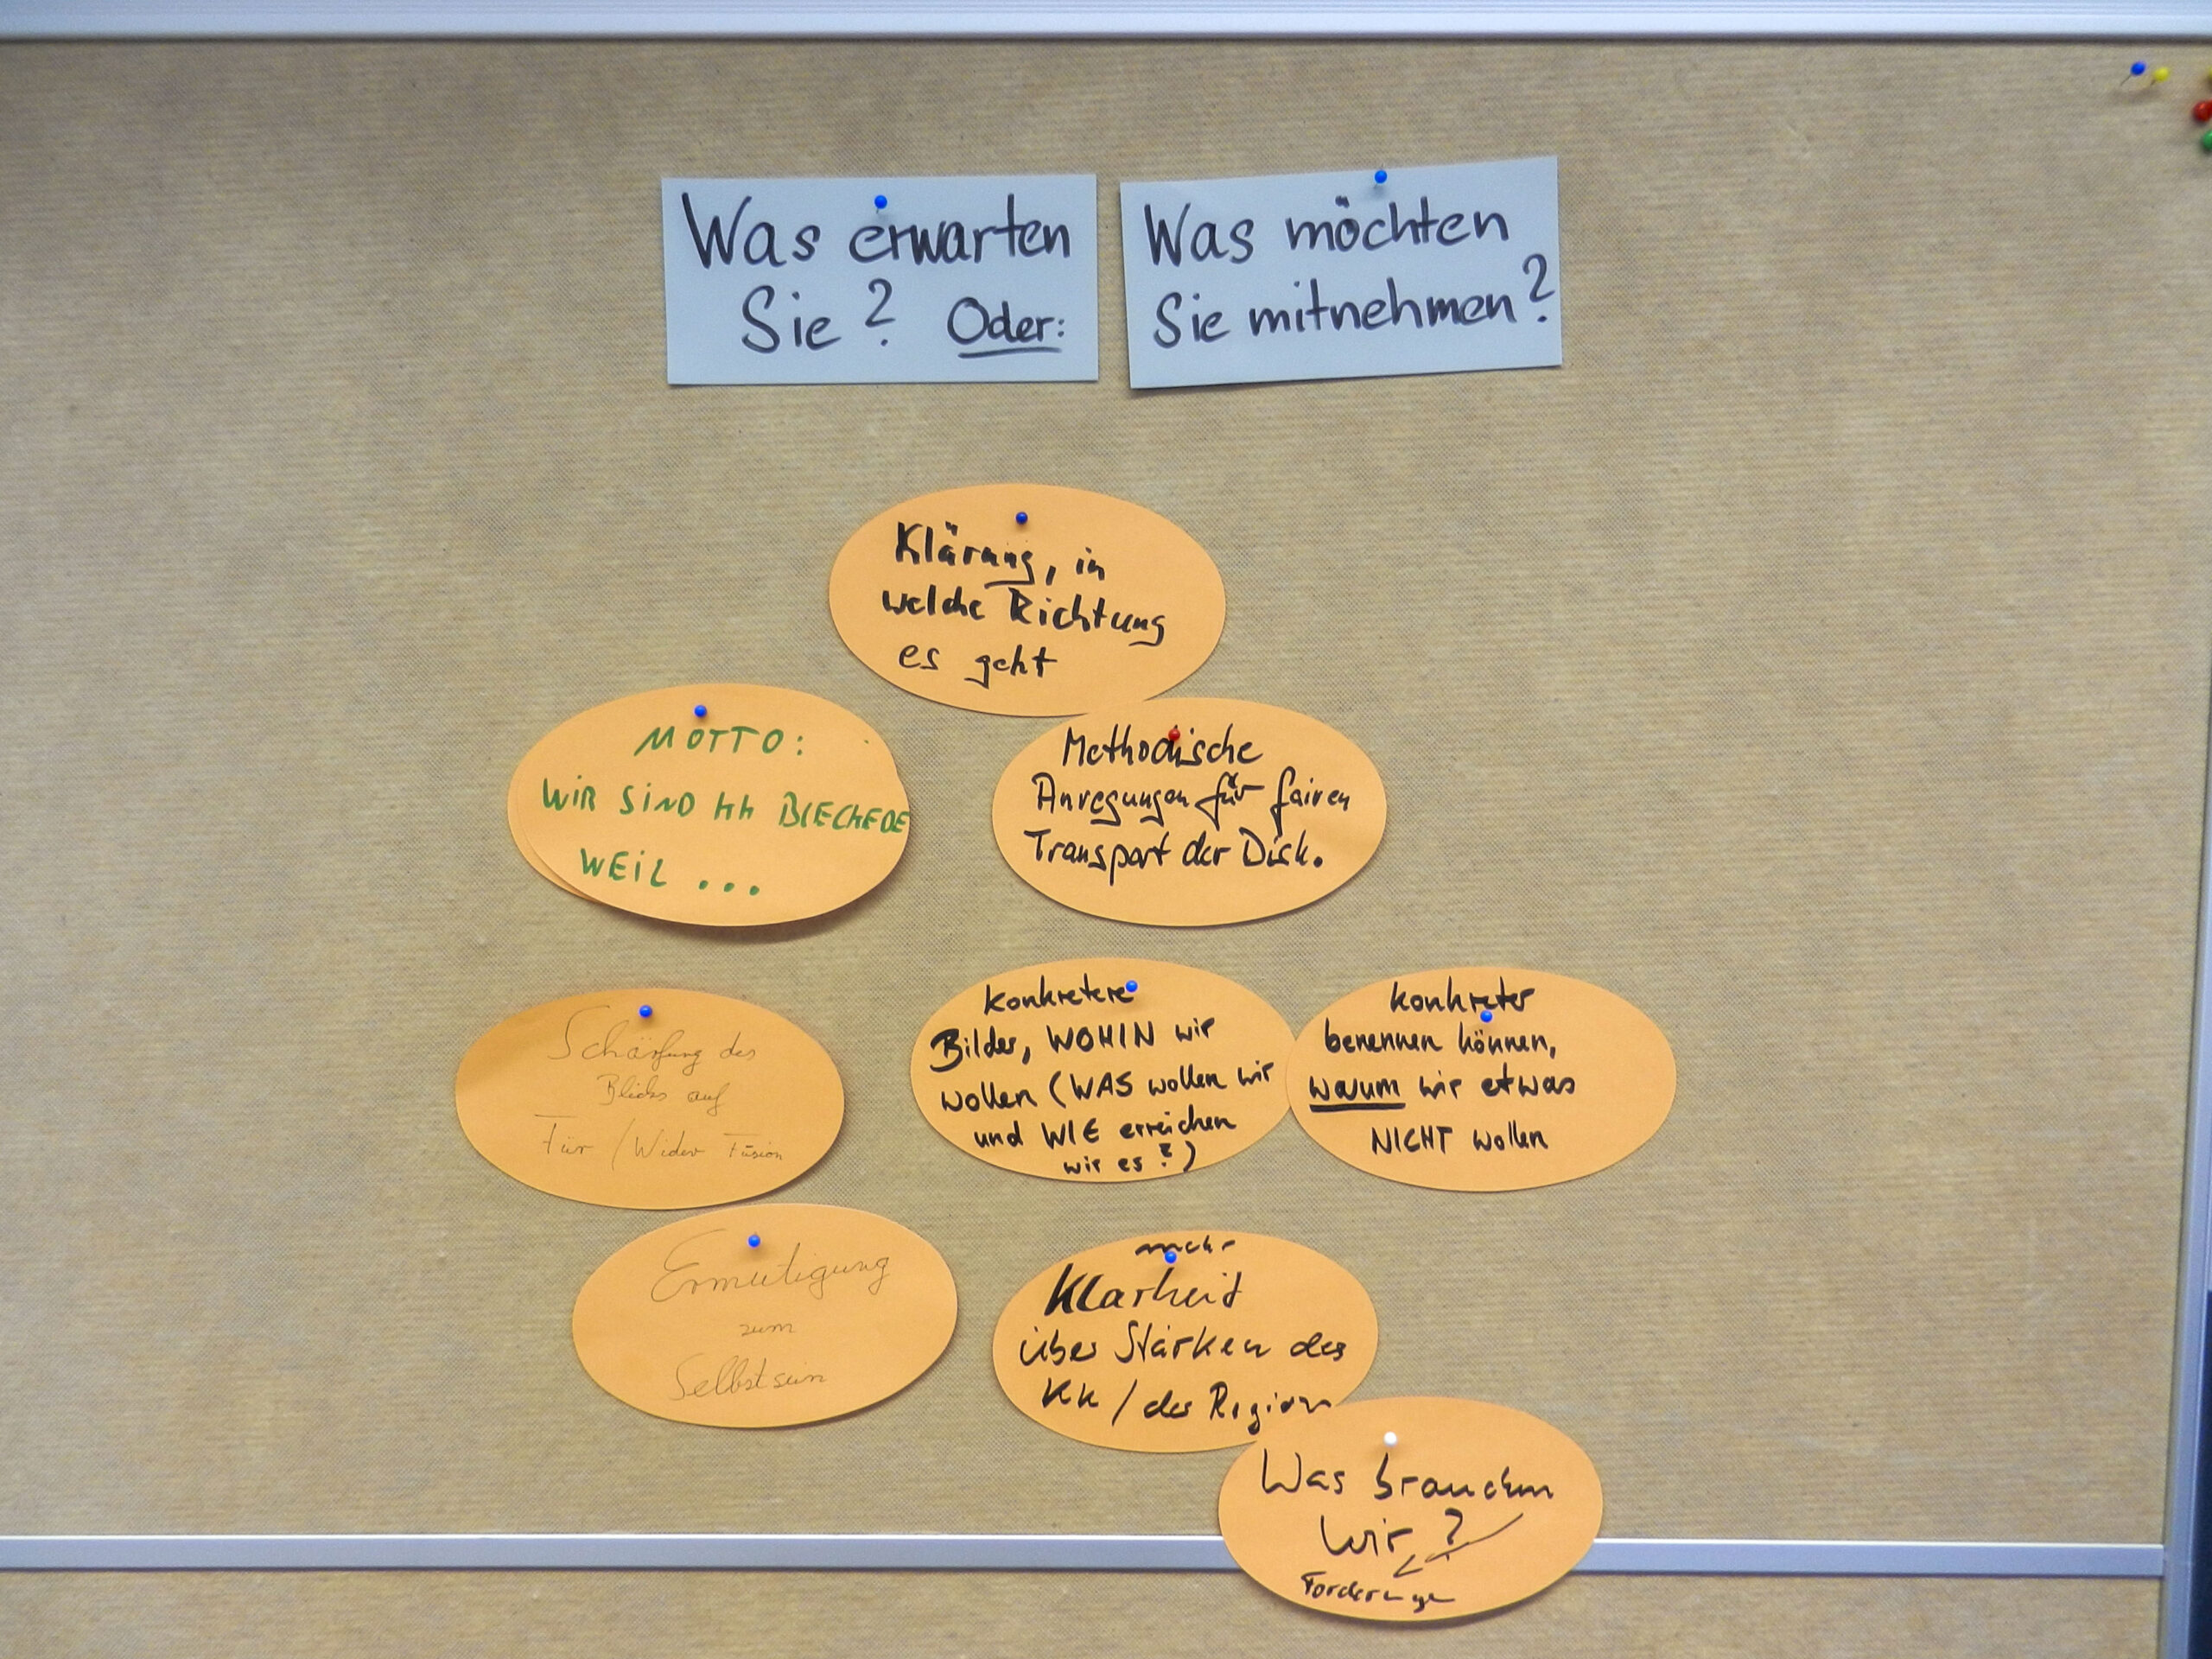 Was erwarten
Sie? Oder:
Was möchten
Sie mitnehmen?
Klärung, in
welche Richtung
es geht
MOTTO:
WIR SIND KK BLECKEDE
WEIL ...
Methodische
Anregungen für fairen
Transport der Disk.
Schärfung des
Blicks auf
Für / Wider Fusion
konkretere
Bilder, WOHIN wir
wollen (WAS wollen wir
und WIE erreichen
wir es?)
konkreter
benennen können,
warum wir etwas
NICHT wollen
Ermutigung
zum
Selbstsein
mehr
Klarheit
über Stärken des
KK / der Region
Was brauchen
wir?
Forderungen